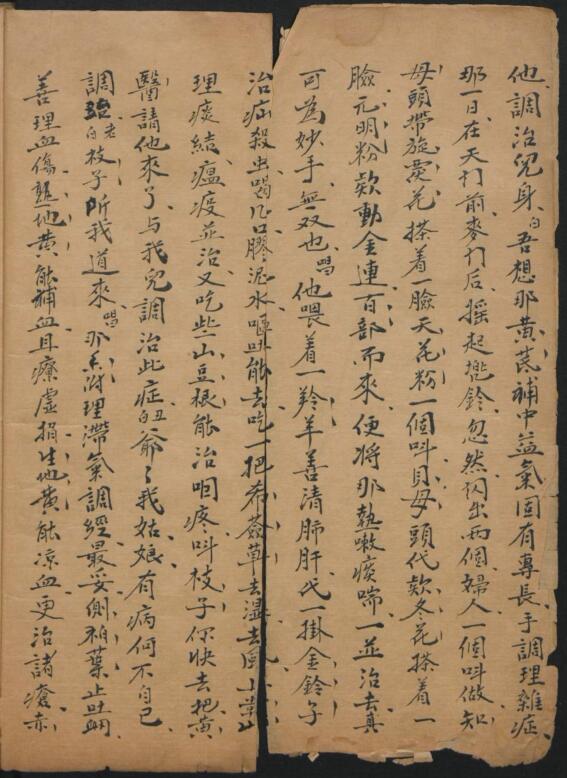 他調治兒身白吾想那黃芪補中益氣固有專長手調理雜症
那一日在天门前麥门后搖起鈴忽然閃出两個婦人一個叫做知
母頭帶旋覆花搽着一臉天花粉一個叫貝母頭代款冬花搽着一
臉元明粉欵動金連百部而來便將那熱嗽痰喘一並治去真
可為妙手無双也唱他喂着一羚羊善清肺肝代一掛金鈴子
治疝殺虫喝几口膠泥水嘔吐能去吃一把希薟草去濕去風
理痰結瘟疫並治又吃些山豆根能治咽疼叫枝子你快去把黃
醫請他來了与我兒調治此症丑白爺々我姑娘有病何不自己
調治老白枝子所我道來唱那香附理滯氣調經最妥側柏葉止吐衂
善理血傷熟地黃能補血且療虛損生地黃能凉血更治諸瘡赤